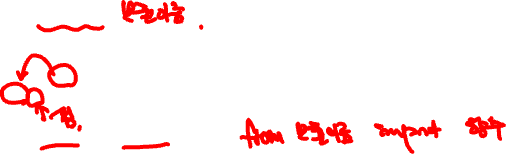 모듈이름.
점.
from 모듈이름 import 함수